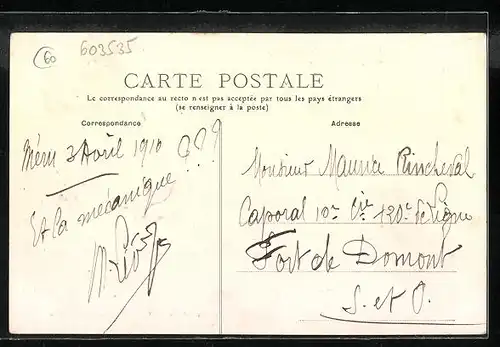 60
603535
CARTE POSTALE
La correspondance au recto n'est pas acceptée par tous les pays étrangers
(se renseigner à la poste)
Correspondance
Adresse
Méru 3 Avril 1910
Et la mécanique ???
Monsieur Maurice Pincheval
Caporal 10e Cie 120e de Ligne
Fort de Domont
S. et O.